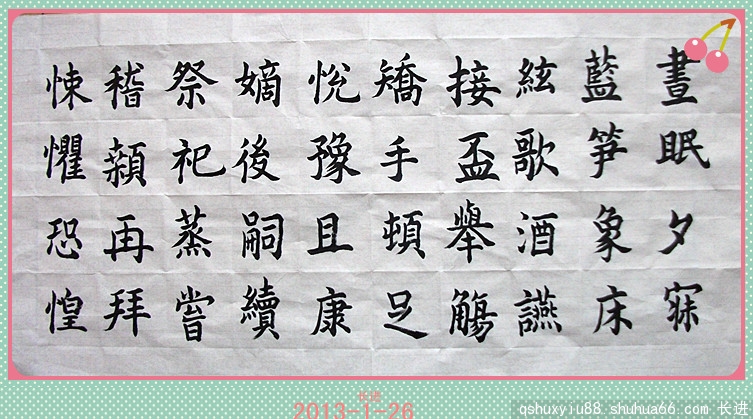 晝眠夕寐
藍笋象床
絃歌酒讌
接盃舉觴
矯手頓足
悅豫且康
嫡後嗣續
祭祀蒸嘗
稽顙再拜
悚懼恐惶
长进
2013-1-26
qshuxyiu88.shuhua66.com 长进